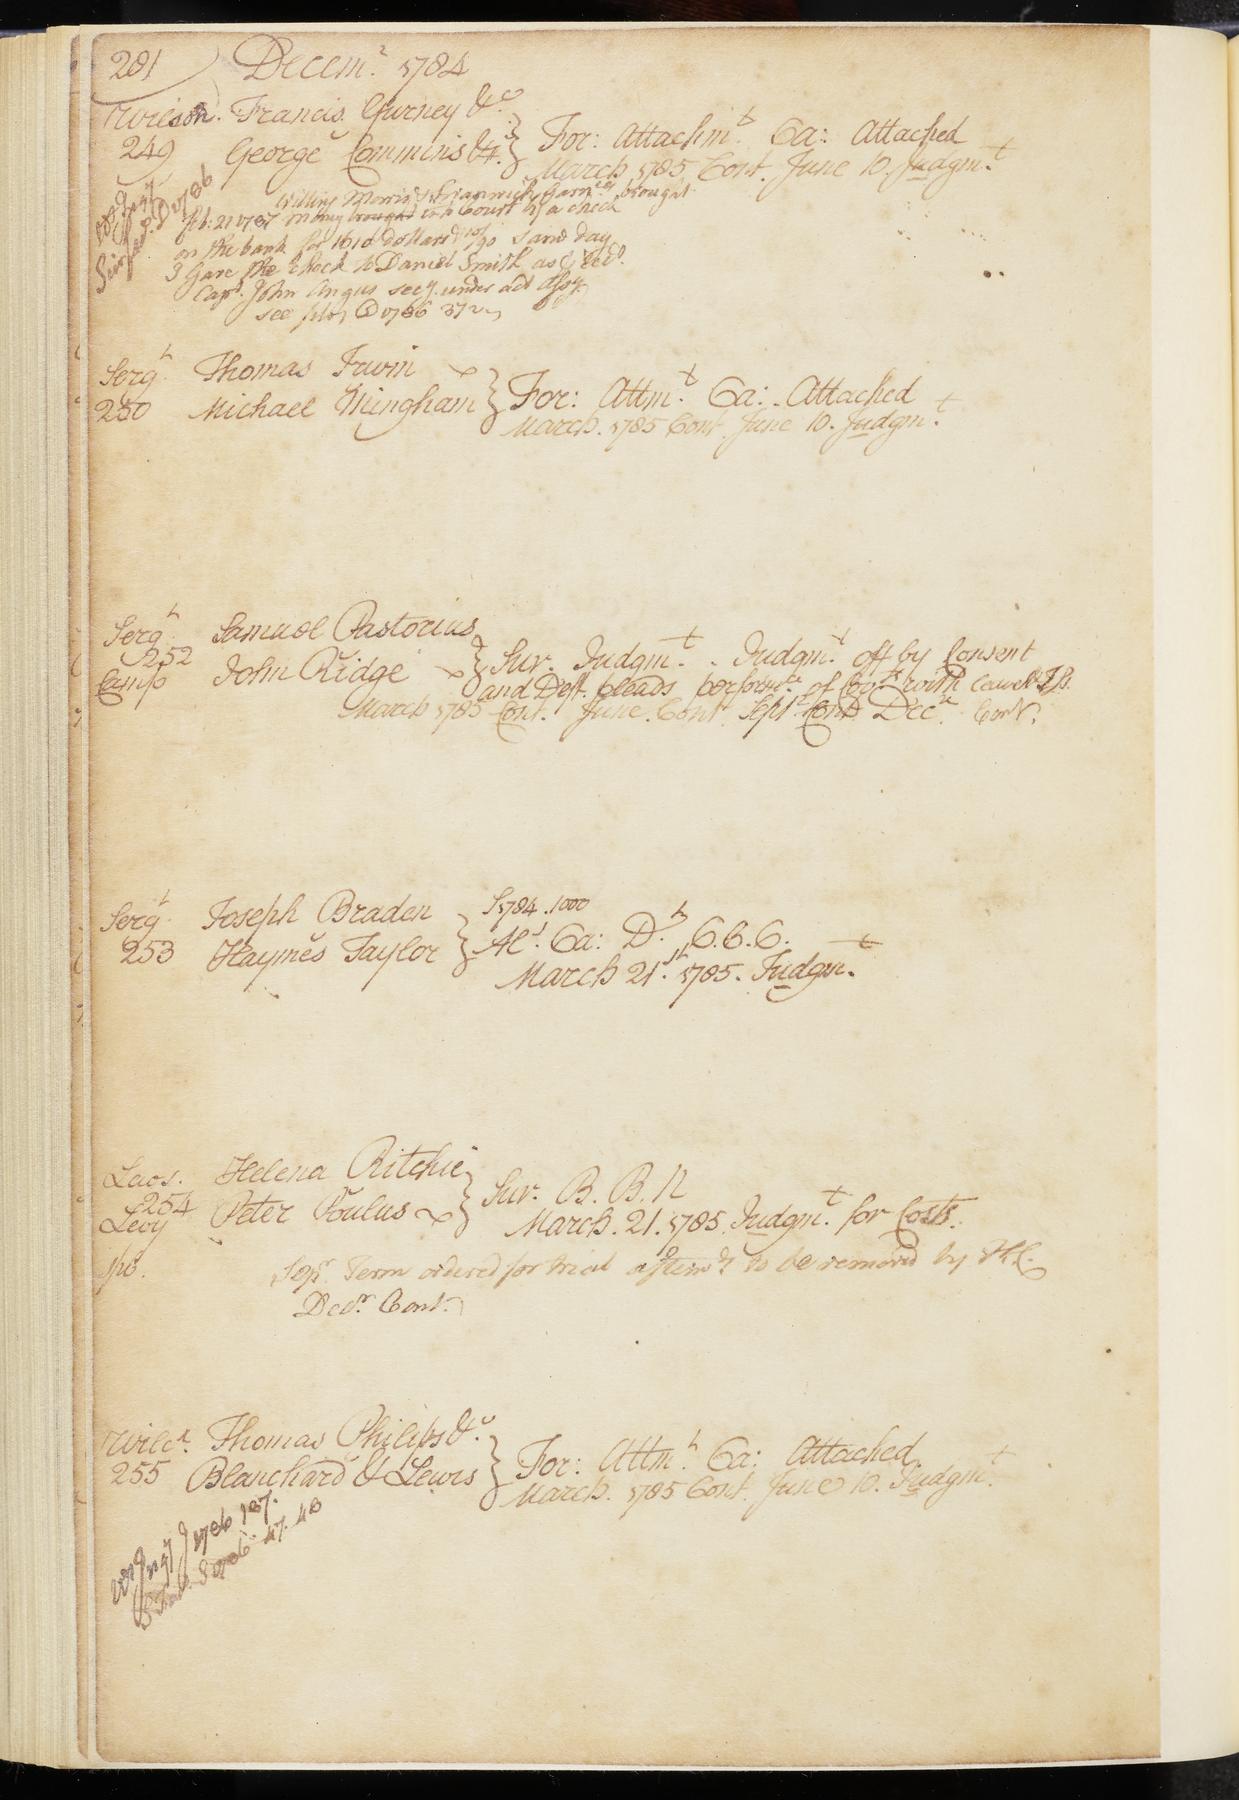 281 Decemr. 1784
Wilcox. Francis Gurney &c
249 George Commins &c. } For: Attachmt. Ca: Attached
March 1785 Cont. June 10. Judgmt.
Willing Morris & Swanwick Garnees brought
Feb: 21 1787 money brought into Court by a check
on the bank for 1610 dollars 10/90 same day
I Gave the Check to Daniel Smith as Recd.
Capt. John Angus secy. under act Assy.
see 1786
Sergt. Thomas Irwin
250 Michael Mingham } For: Attmt. Ca: Attached
March. 1785 Cont. June 10. Judgmt.
Sergt. Samuel Pastorius
252 John Ridge } Sur. Judgmt. Judgmt. off by Consent
and Deft. pleads performce. of Covts. with leave &c
March 1785 Cont. June. Cont. Sept. Cont. Decr. Cont.
S 1784. 1000
Sergt. Joseph Braden
253 Haymes Taylor } Als. Ca: Dt. C.C.C.
March 21st. 1785. Judgmt.
Helena Ritchie
254 Peter Poulus } Sur. B. B. R
Levy March. 21. 1785. Judgmt. for Costs.
Sepr. Term ordered for trial afterwds. to be removed by
Decr. Cont.
Wilcx. Thomas Philips &c.
255 Blanchard & Lewis } For: Attmt. Ca: Attached
March. 1785 Cont. June 10. Judgmt.